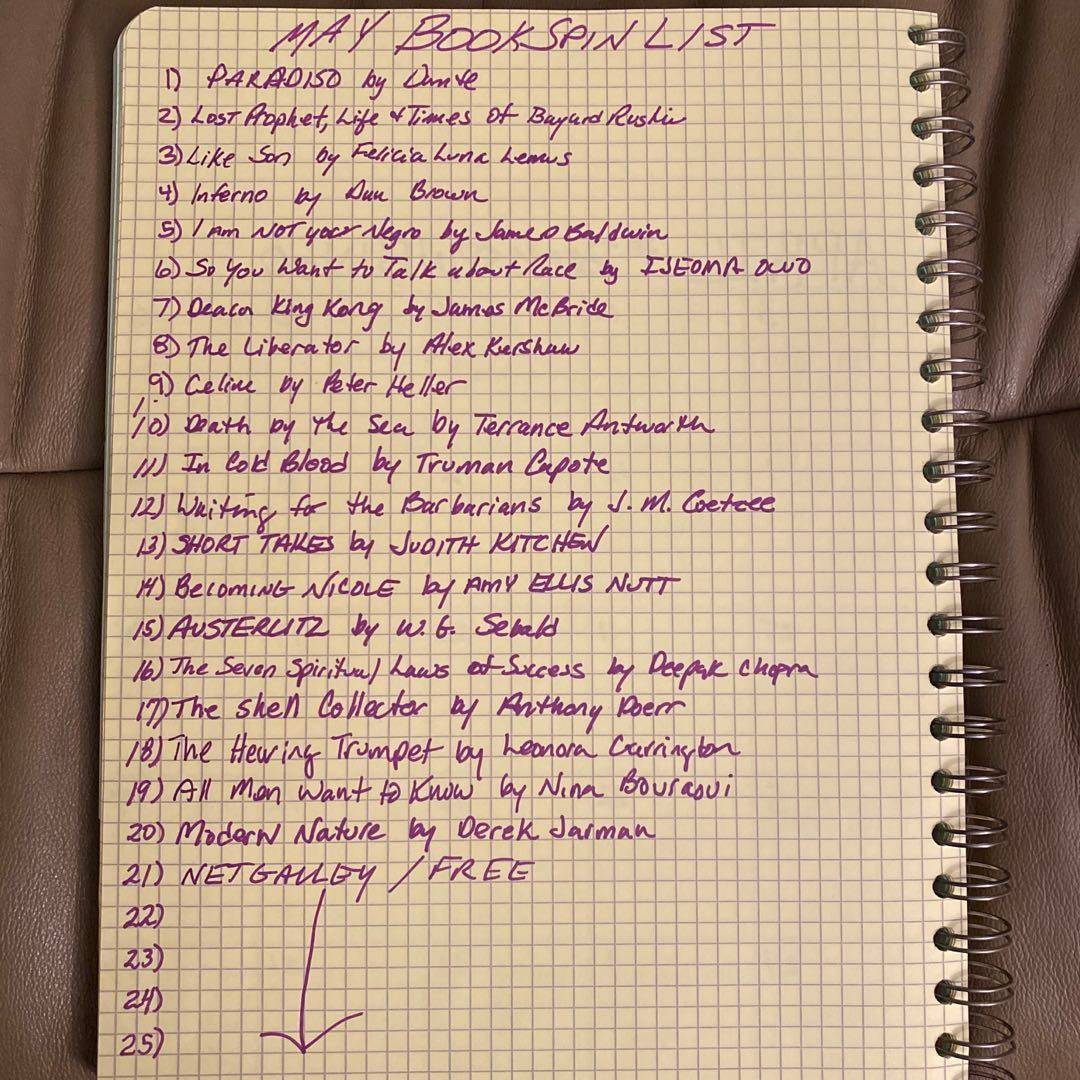 MAY BOOKSPIN LIST
1) PARADISO by Dante
2) Lost Prophet, Life + Times Of Bayard Rustin
3) Like Son by Felicia Luna Lemus
4) Inferno by Dan Brown
5) I Am NOT your Negro by James Baldwin
6) So You Want to Talk about Race by IJEOMA OLUO
7) Deacon King Kong by James McBride
8) The Liberator by Alex Kershaw
9) Celine by Peter Heller
10) Death by the Sea by Terrance Antwarth
11) In Cold Blood by Truman Capote
12) Waiting for the Barbarians by J. M. Coetzee
13) SHORT TAKES by JUDITH KITCHEN
14) BECOMING NICOLE by AMY ELLIS NUTT
15) AUSTERLITZ by W. G. Sebald
16) The Seven Spiritual Laws of Success by Deepak Chopra
17) The Shell Collector by Anthony Doerr
18) The Hearing Trumpet by Leonora Carrington
19) All Men Want to Know by Nina Bouraoui
20) Modern Nature by Derek Jarman
21) NETGALLEY / FREE
22)
23)
24)
25)